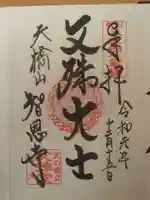 奉拝
令和元年
十二月十五日
文殊大士
天橋山
智恩寺